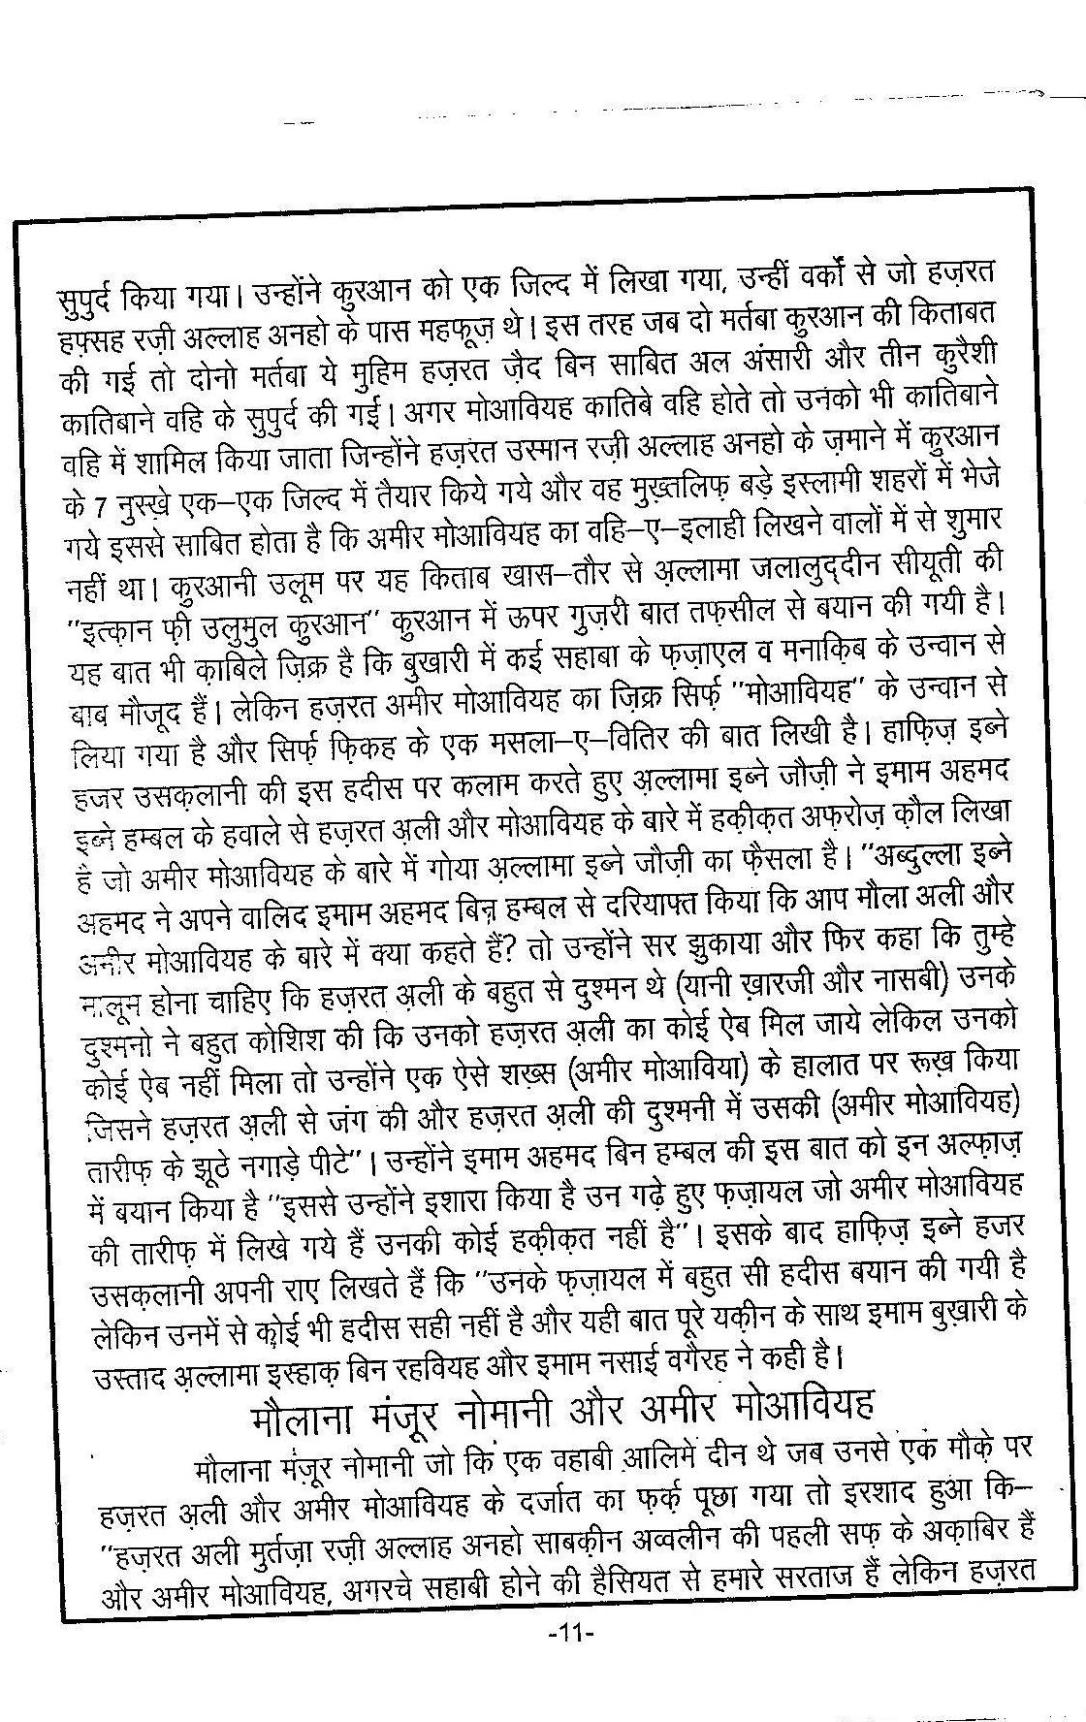 सुपुर्द किया गया। उन्होंने कुरआन को एक जिल्द में लिखा गया, उन्हीं वर्कों से जो हज़रत
हफ़्सह रज़ी अल्लाह अनहो के पास महफूज़ थे। इस तरह जब दो मर्तबा कुरआन की किताबत
की गई तो दोनो मर्तबा ये मुहिम हज़रत ज़ैद बिन साबित अल अंसारी और तीन कुरैशी
कातिबाने वहि के सुपुर्द की गई। अगर मोआवियह कातिबे वहि होते तो उनको भी कातिबाने
वहि में शामिल किया जाता जिन्होंने हज़रत उस्मान रज़ी अल्लाह अनहो के ज़माने में कुरआन
के 7 नुस्खे एक–एक जिल्द में तैयार किये गये और वह मुख़्तलिफ़ बड़े इस्लामी शहरों में भेजे
गये इससे साबित होता है कि अमीर मोआवियह का वहि–ए–इलाही लिखने वालों में से शुमार
नहीं था। कुरआनी उलूम पर यह किताब खास–तौर से अ़ल्लामा जलालुद्दीन सीयूती की
"इत्क़ान फ़ी उलुमुल क़ुरआन" कुरआन में ऊपर गुज़री बात तफ़सील से बयान की गयी है।
यह बात भी क़ाबिले ज़िक्र है कि बुखारी में कई सहाबा के फ़ज़ाएल व मनाक़िब के उन्वान से
बाब मौजूद हैं। लेकिन हज़रत अमीर मोआवियह का ज़िक्र सिर्फ़ "मोआवियह" के उन्वान से
लिया गया है और सिर्फ़ फ़िकह के एक मसला–ए–वितिर की बात लिखी है। हाफ़िज़ इब्ने
हजर उसक़लानी की इस हदीस पर कलाम करते हुए अ़ल्लामा इब्ने जौज़ी ने इमाम अहमद
इब्ने हम्बल के हवाले से हज़रत अ़ली और मोआवियह के बारे में हक़ीक़त अफ़रोज़ क़ौल लिखा
है जो अमीर मोआवियह के बारे में गोया अ़ल्लामा इब्ने जौज़ी का फ़ैसला है। "अब्दुल्ला इब्ने
अहमद ने अपने वालिद इमाम अहमद बिन हम्बल से दरियाफ्त किया कि आप मौला अली और
अमीर मोआवियह के बारे में क्या कहते हैं? तो उन्होंने सर झुकाया और फिर कहा कि तुम्हे
मालूम होना चाहिए कि हज़रत अ़ली के बहुत से दुश्मन थे (यानी ख़ारजी और नासबी) उनके
दुश्मनो ने बहुत कोशिश की कि उनको हज़रत अ़ली का कोई ऐब मिल जाये लेकिल उनको
कोई ऐब नहीं मिला तो उन्होंने एक ऐसे शख़्स (अमीर मोआविया) के हालात पर रूख़ किया
जिसने हज़रत अ़ली से जंग की और हज़रत अ़ली की दुश्मनी में उसकी (अमीर मोआवियह)
तारीफ़ के झूठे नगाड़े पीटे"। उन्होंने इमाम अहमद बिन हम्बल की इस बात को इन अल्फ़ाज़
में बयान किया है "इससे उन्होंने इशारा किया है उन गढ़े हुए फ़ज़ायल जो अमीर मोआवियह
की तारीफ़ में लिखे गये हैं उनकी कोई हक़ीक़त नहीं है"। इसके बाद हाफ़िज़ इब्ने हजर
उसक़लानी अपनी राए लिखते हैं कि "उनके फ़ज़ायल में बहुत सी हदीस बयान की गयी है
लेकिन उनमें से कोई भी हदीस सही नहीं है और यही बात पूरे यक़ीन के साथ इमाम बुख़ारी के
उस्ताद अ़ल्लामा इस्हाक़ बिन रहवियह और इमाम नसाई वगैरह ने कही है।
मौलाना मंज़ूर नोमानी और अमीर मोआवियह
मौलाना मंज़ूर नोमानी जो कि एक वहाबी आलिमे दीन थे जब उनसे एक मौक़े पर
हज़रत अ़ली और अमीर मोआवियह के दर्जात का फ़र्क़ पूछा गया तो इरशाद हुआ कि–
"हज़रत अली मुर्तज़ा रज़ी अल्लाह अनहो साबक़ीन अव्वलीन की पहली सफ़ के अक़ाबिर हैं
और अमीर मोआवियह, अगरचे सहाबी होने की हैसियत से हमारे सरताज हैं लेकिन हज़रत
-11-